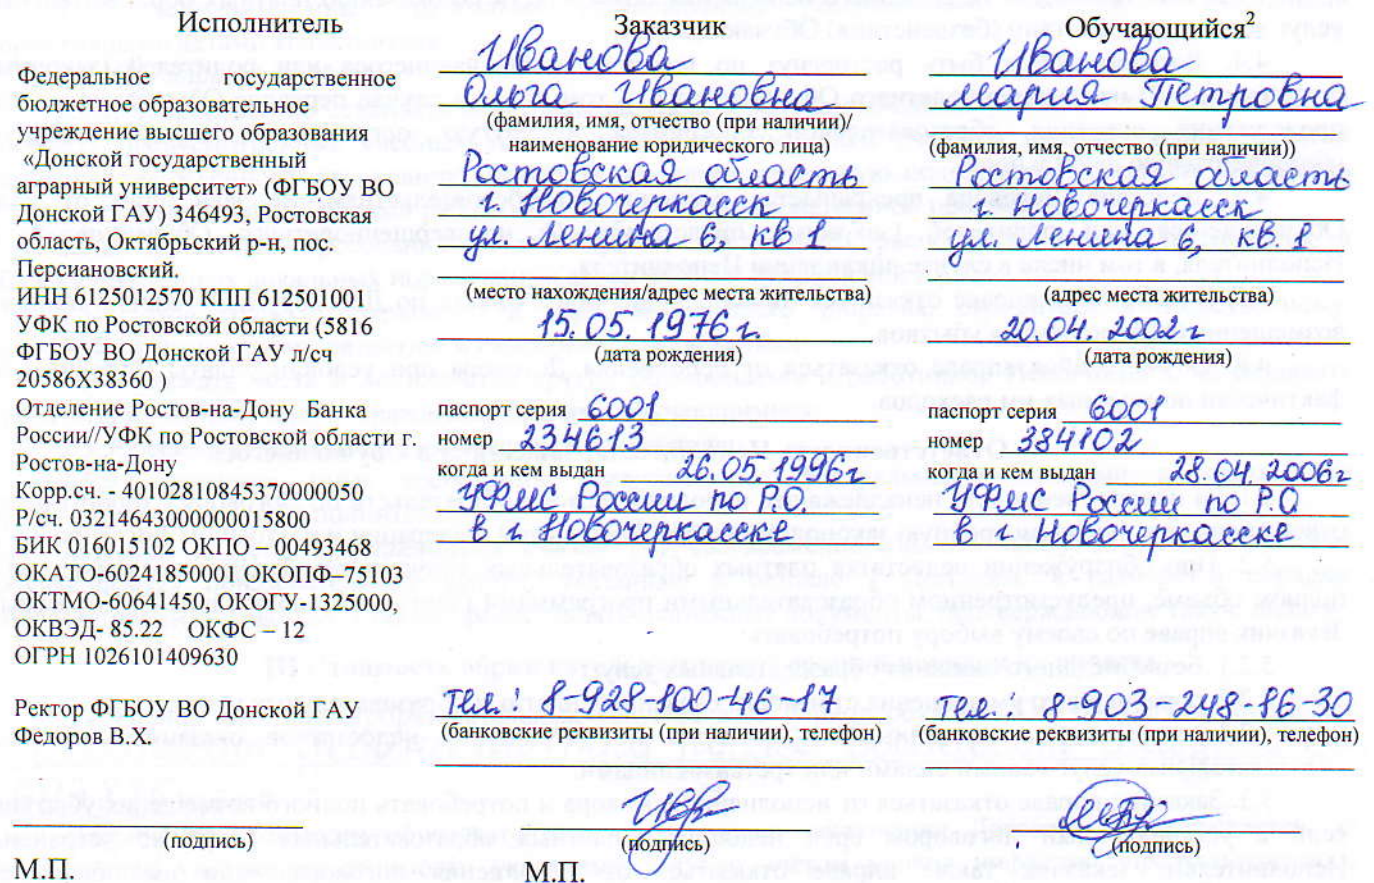 Исполнитель
Федеральное государственное
бюджетное образовательное
учреждение высшего образования
«Донской государственный
аграрный университет» (ФГБОУ ВО
Донской ГАУ) 346493, Ростовская
область, Октябрьский р-н, пос.
Персиановский.
ИНН 6125012570 КПП 612501001
УФК по Ростовской области (5816
ФГБОУ ВО Донской ГАУ л/сч
20586Х38360 )
Отделение Ростов-на-Дону Банка
России//УФК по Ростовской области г.
Ростов-на-Дону
Корр.сч. - 40102810845370000050
Р/сч. 03214643000000015800
БИК 016015102 ОКПО – 00493468
ОКАТО-60241850001 ОКОПФ–75103
ОКТМО-60641450, ОКОГУ-1325000,
ОКВЭД- 85.22 ОКФС – 12
ОГРН 1026101409630
Ректор ФГБОУ ВО Донской ГАУ
Федоров В.Х.
(подпись)
М.П.
Заказчик
Иванова
Ольга Ивановна
(фамилия, имя, отчество (при наличии)/
наименование юридического лица)
Ростовская область
г. Новочеркасск
ул. Ленина 6, кв 1
(место нахождения/адрес места жительства)
15.05.1976 г.
(дата рождения)
паспорт серия 6001
номер 234613
когда и кем выдан 26.05.1996г
УФМС России по Р.О.
в г. Новочеркасске
Тел.: 8-928-100-46-17
(банковские реквизиты (при наличии), телефон)
(подпись)
М.П.
Обучающийся2
Иванова
Мария Петровна
(фамилия, имя, отчество (при наличии))
Ростовская область
г. Новочеркасск
ул. Ленина 6, кв. 1
(адрес места жительства)
20.04.2002 г
(дата рождения)
паспорт серия 6001
номер 384102
когда и кем выдан 28.04.2006г
УФМС России по Р.О
в г. Новочеркасске
Тел.: 8-903-248-86-30
(банковские реквизиты (при наличии), телефон)
(подпись)